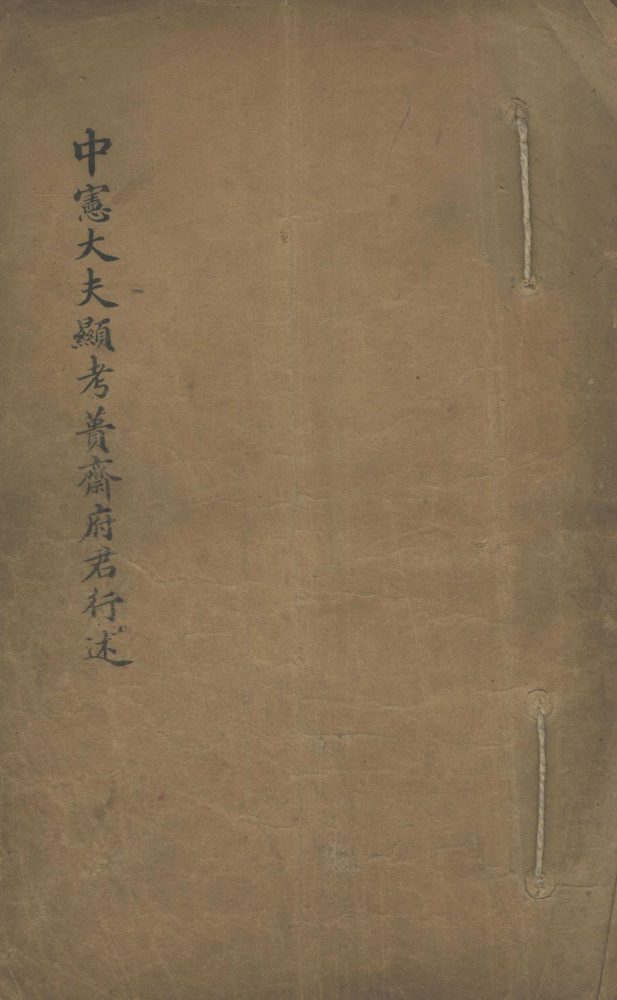 中憲大夫顯考蕡齋府君行述